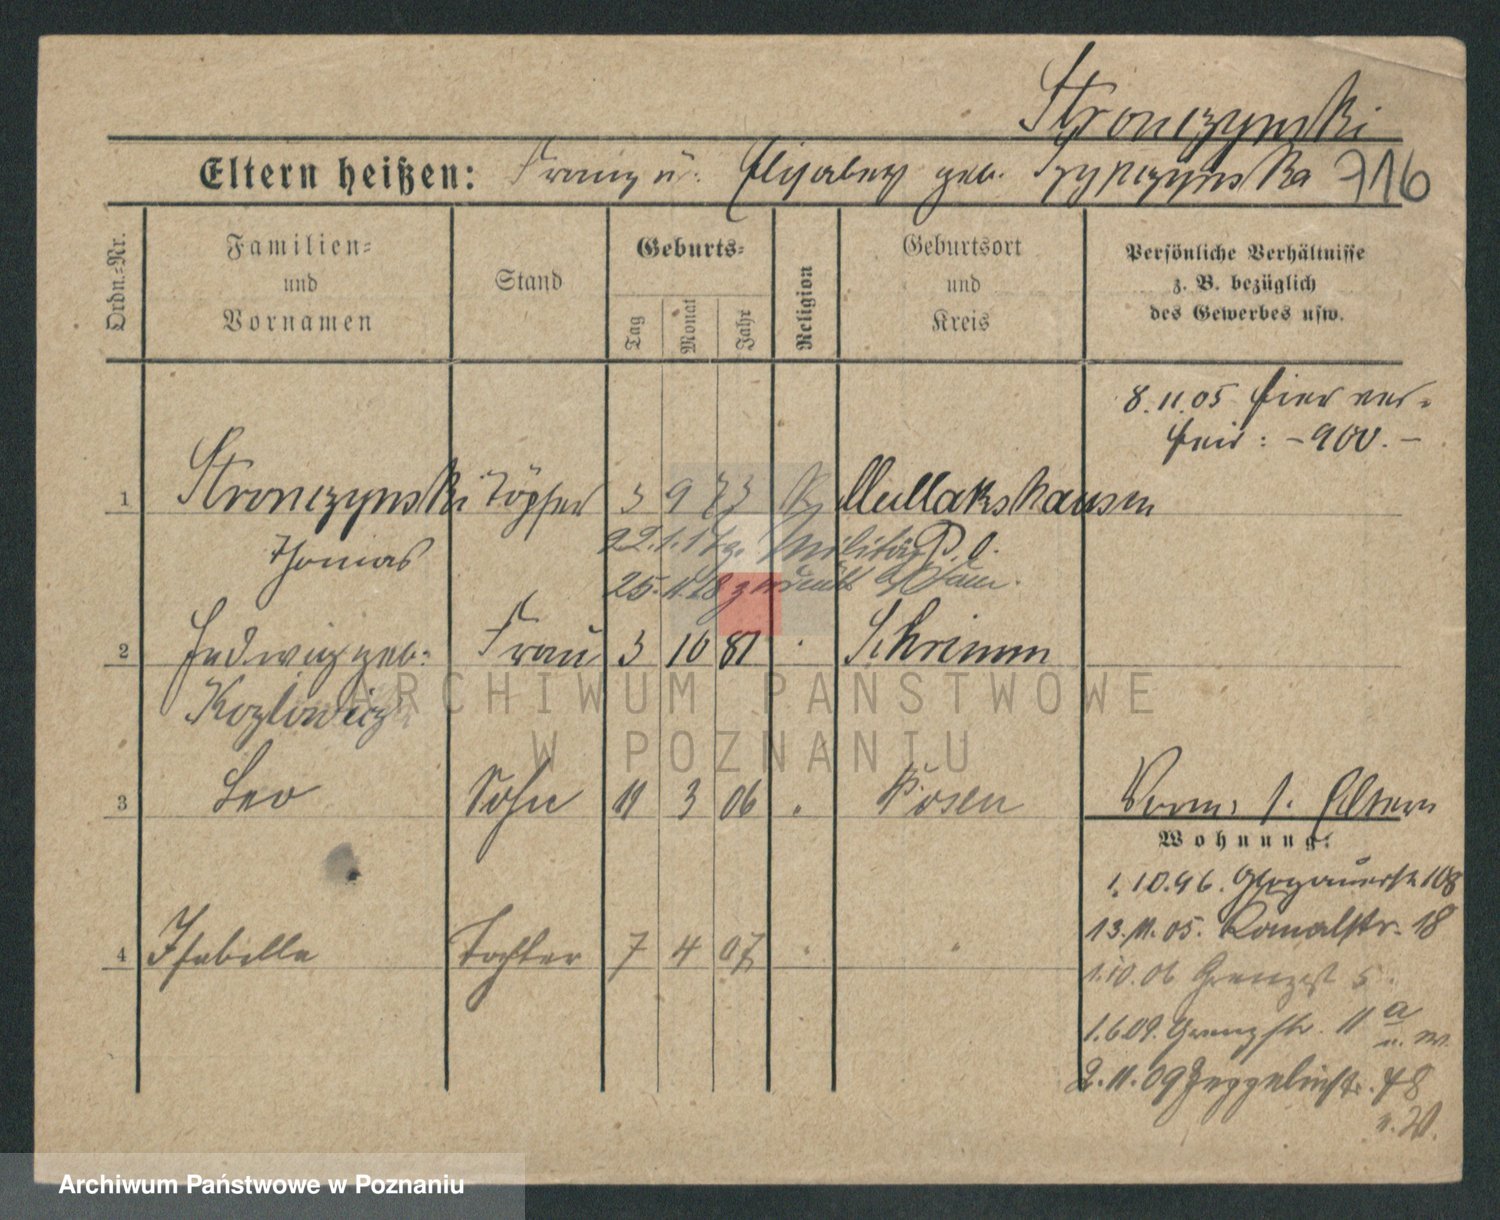 Stronczynski
Eltern heißen: Franz u. Elisabeth geb. Szypczynska 716
Ordn.-Nr.
Familien-
und
Vornamen
Stand
Geburts-
Tag
Monat
Jahr
Religion
Geburtsort
und
Kreis
Persönliche Verhältnisse
z. B. bezüglich
des Gewerbes usw.
8.11.05 hier ver-
heir: -900.-
1 Stronczynski Töpfer 3 9 73 K Mullakshausen
Thomas
22.1.17 z. Militär
25.11.18 zurück
2 Hedwig geb. Frau 3 10 81 Schrimm
Kozlowicz
3 Leo Sohn 11 3 06 " Posen
Vorm. s. Eltern
Wohnung:
1.10.96. Glogauerstr 108
13.11.05. Kanalstr. 18
4 Isabella Tochter 7 4 07 " "
1.10.06 Grenzst 5.
1.6.09. Grenzstr. 11 a
u. W.
2.11.09 Zeppelinstr. 48
u. W.
ARCHIWUM PAŃSTWOWE
W POZNANIU
Archiwum Państwowe w Poznaniu